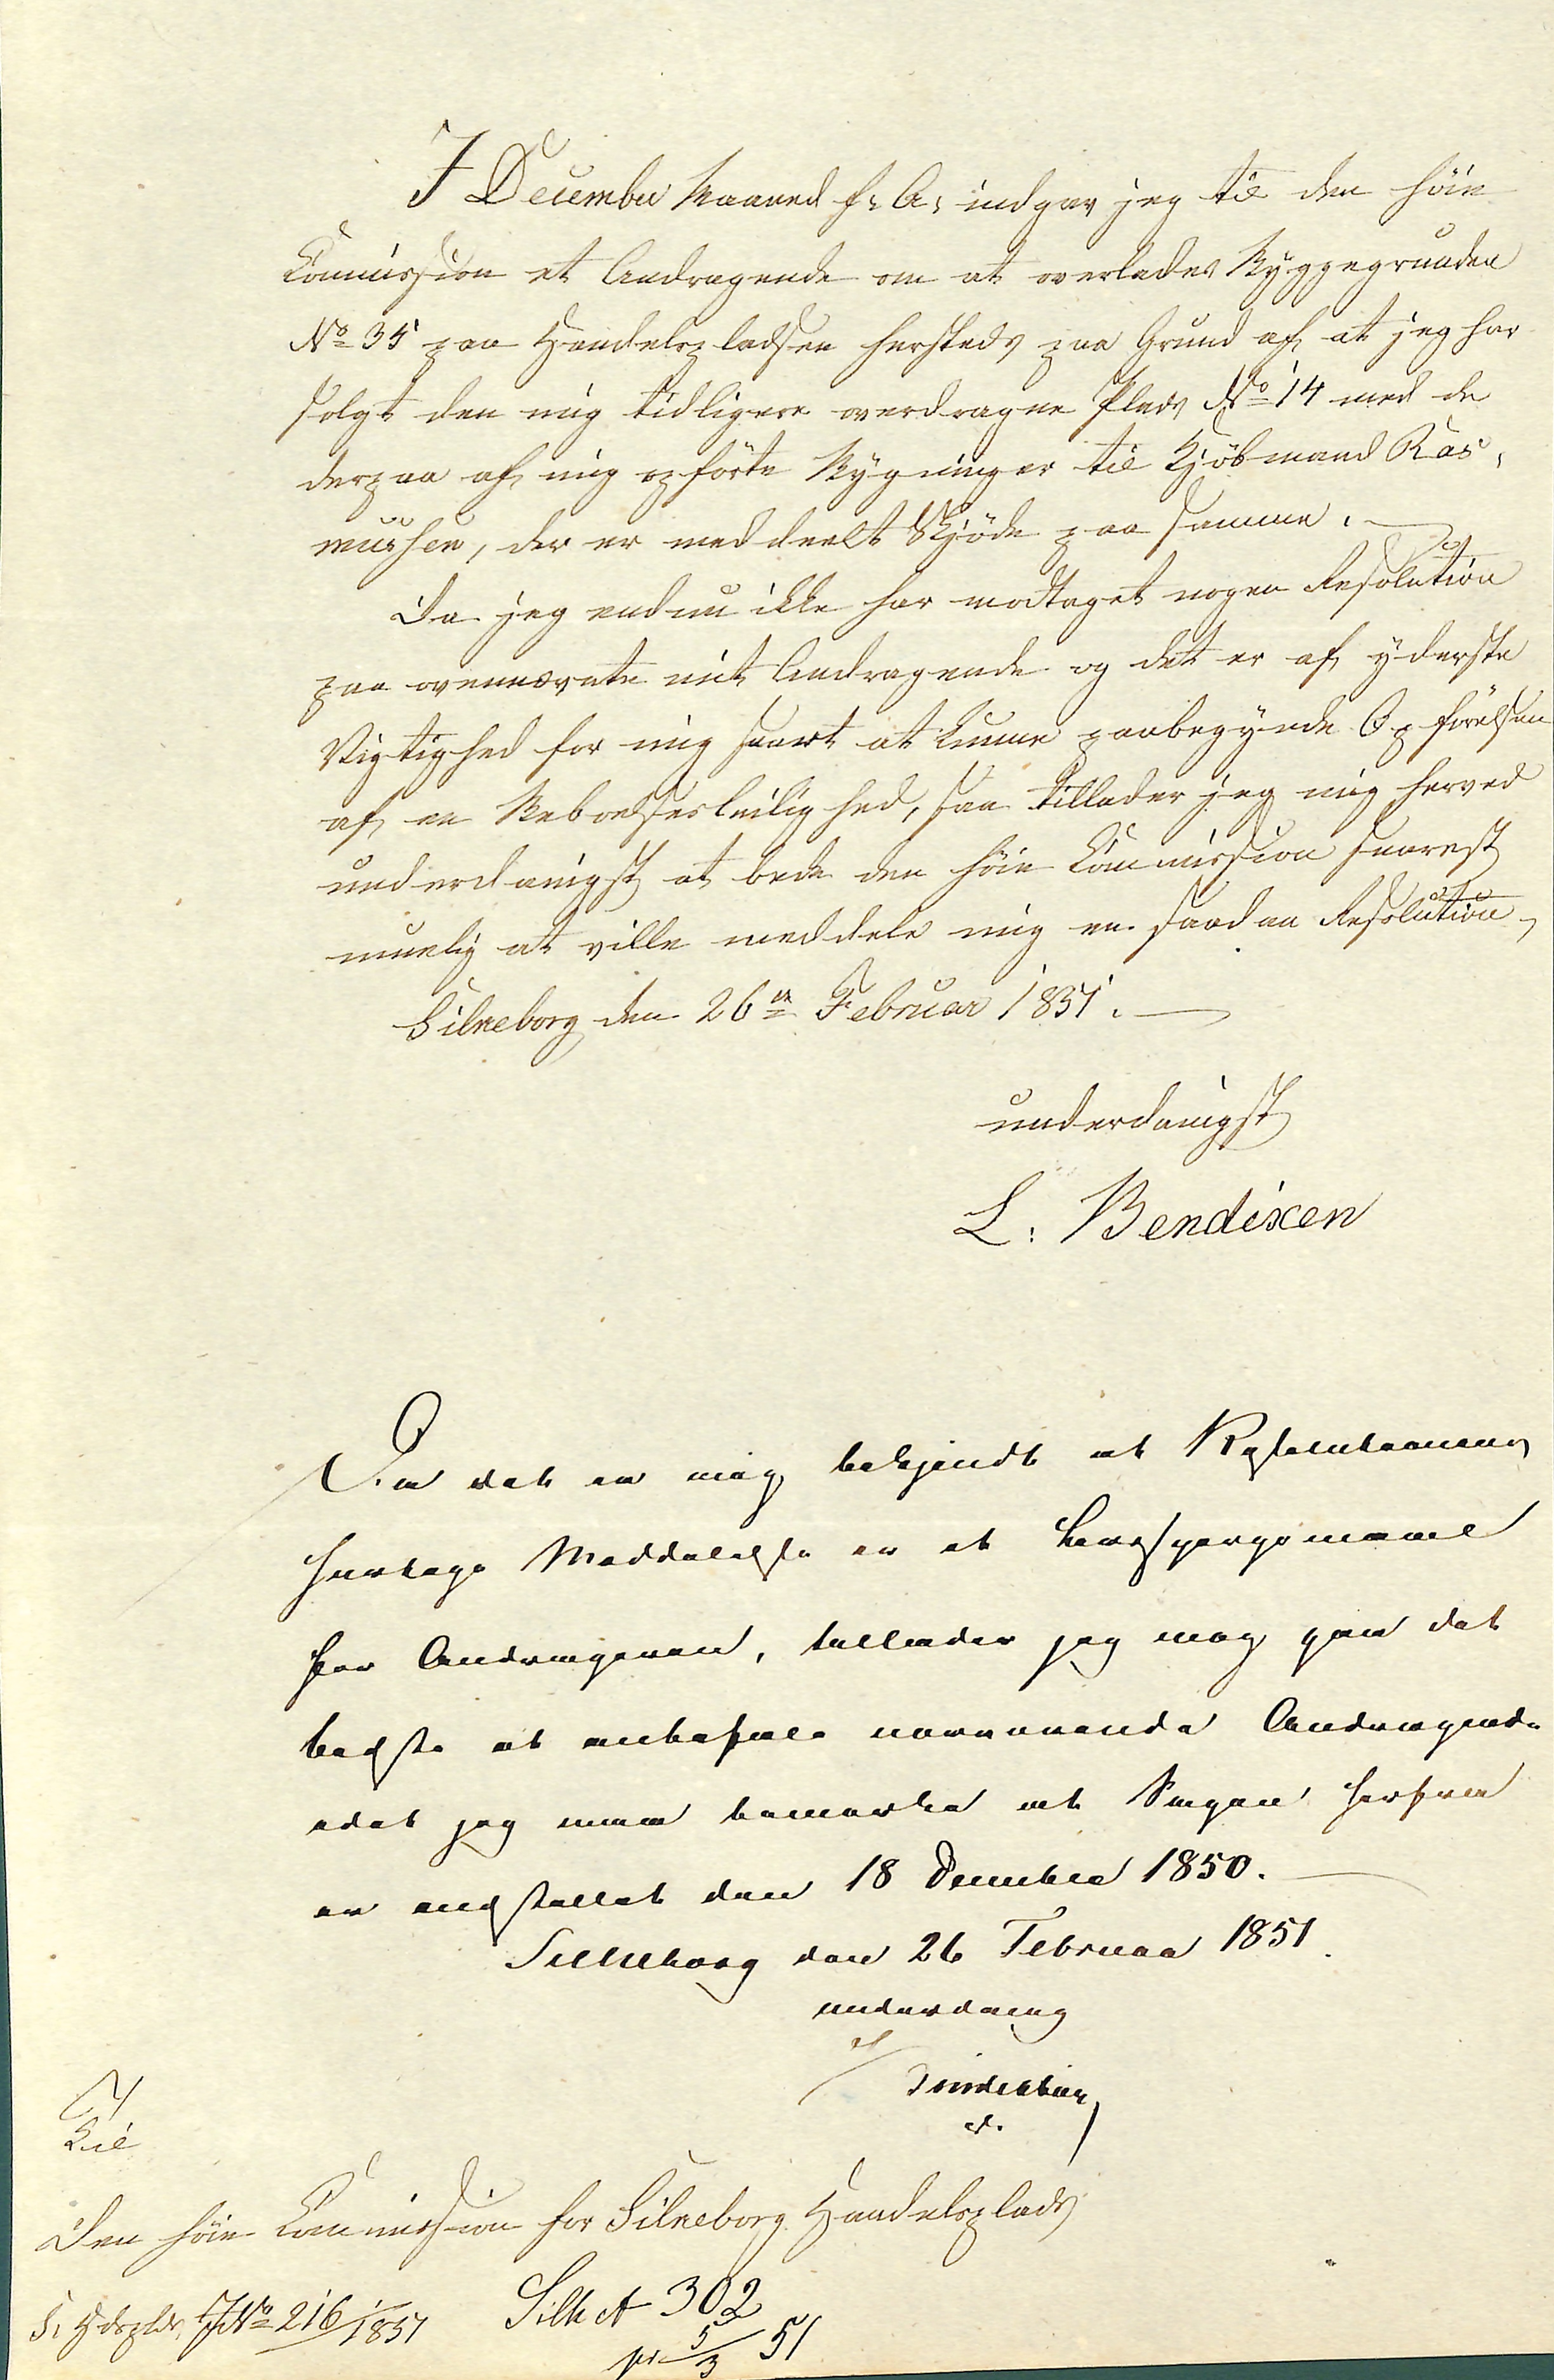 I December Maaned f: A: indgav jeg til den höie
Commission et Andragende om at overlades Byggegrunden
No 35 paa Handelspladsen hersteds paa Grund af at jeg har
solgt den mig tidligere overdragne Plads No 14 med de
derpaa af mig opförte Bygninger til Kjöbmand Ras-
mussen, der er meddeelt Skjöde paa samme.
Da jeg endnu ikke har modtaget nogen Resolution
paa ovennævnte mit Andragende og det er af yderste
Vigtighed for mig snart at kunne paabegynde Opförelsen
af en Beboelsesleilighed, saa tillader jeg mig herved
underdanigst at bede den höie Commission snarest
muelig at ville meddele mig en saadan Resolution,
Silkeborg den 26de Februar 1851.
underdanigst
L. Bendixen
Da det er mig bekjendt at Resolutionens
hurtige Meddelelse er et Livsspørgsmaal
for Andrageren, tillader jeg mig paa det
bedste at anbefale nærværende Andragende
idet jeg maa bemærke at Sagen herfra
er indstillet den 18 December 1850.
Silkeborg den 26 Februar 1851.
underdanig
Til
Den höie Commission for Silkeborg Handelsplads
S. Hdsplds. J No 216/1851
Silk A 302
pr 5/3 51